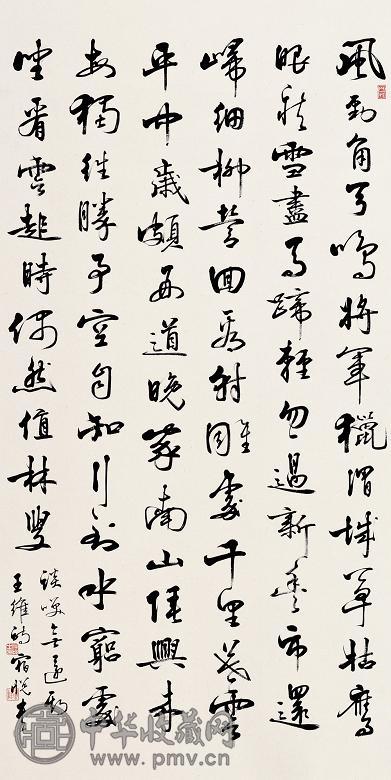 風勁角弓鳴將軍獵渭城草枯鷹
眼疾雪盡馬蹄輕忽過新豐市還
歸細柳營回看射雕處千里暮雲
平中歲頗好道晚家南山陲興來
每獨往勝事空自知行到水窮處
坐看雲起時偶然值林叟
談笑無還期
王維詩 宿悅書
中华收藏网
www.pmv.cn